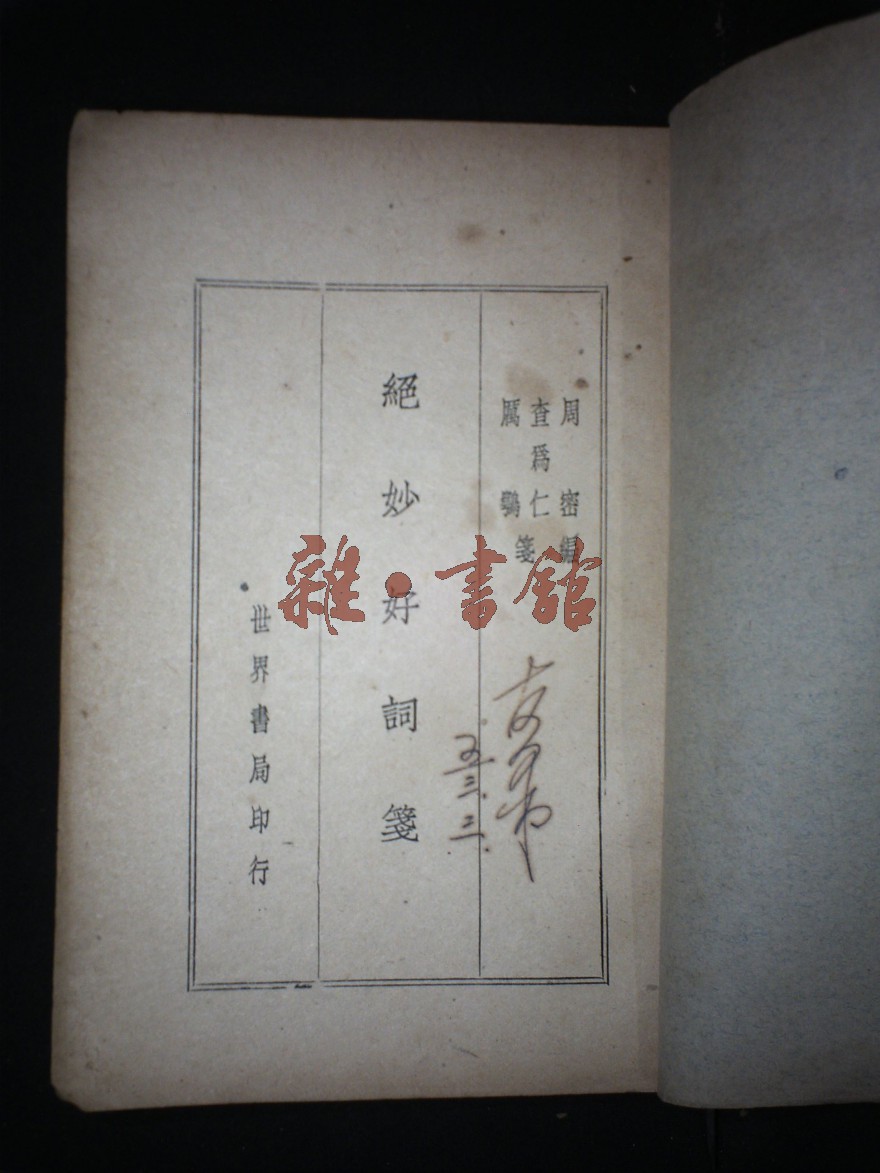 周密編
查爲仁
厲鶚
箋
絕妙好詞箋
世界書局印行
雜·書館
五三.三.